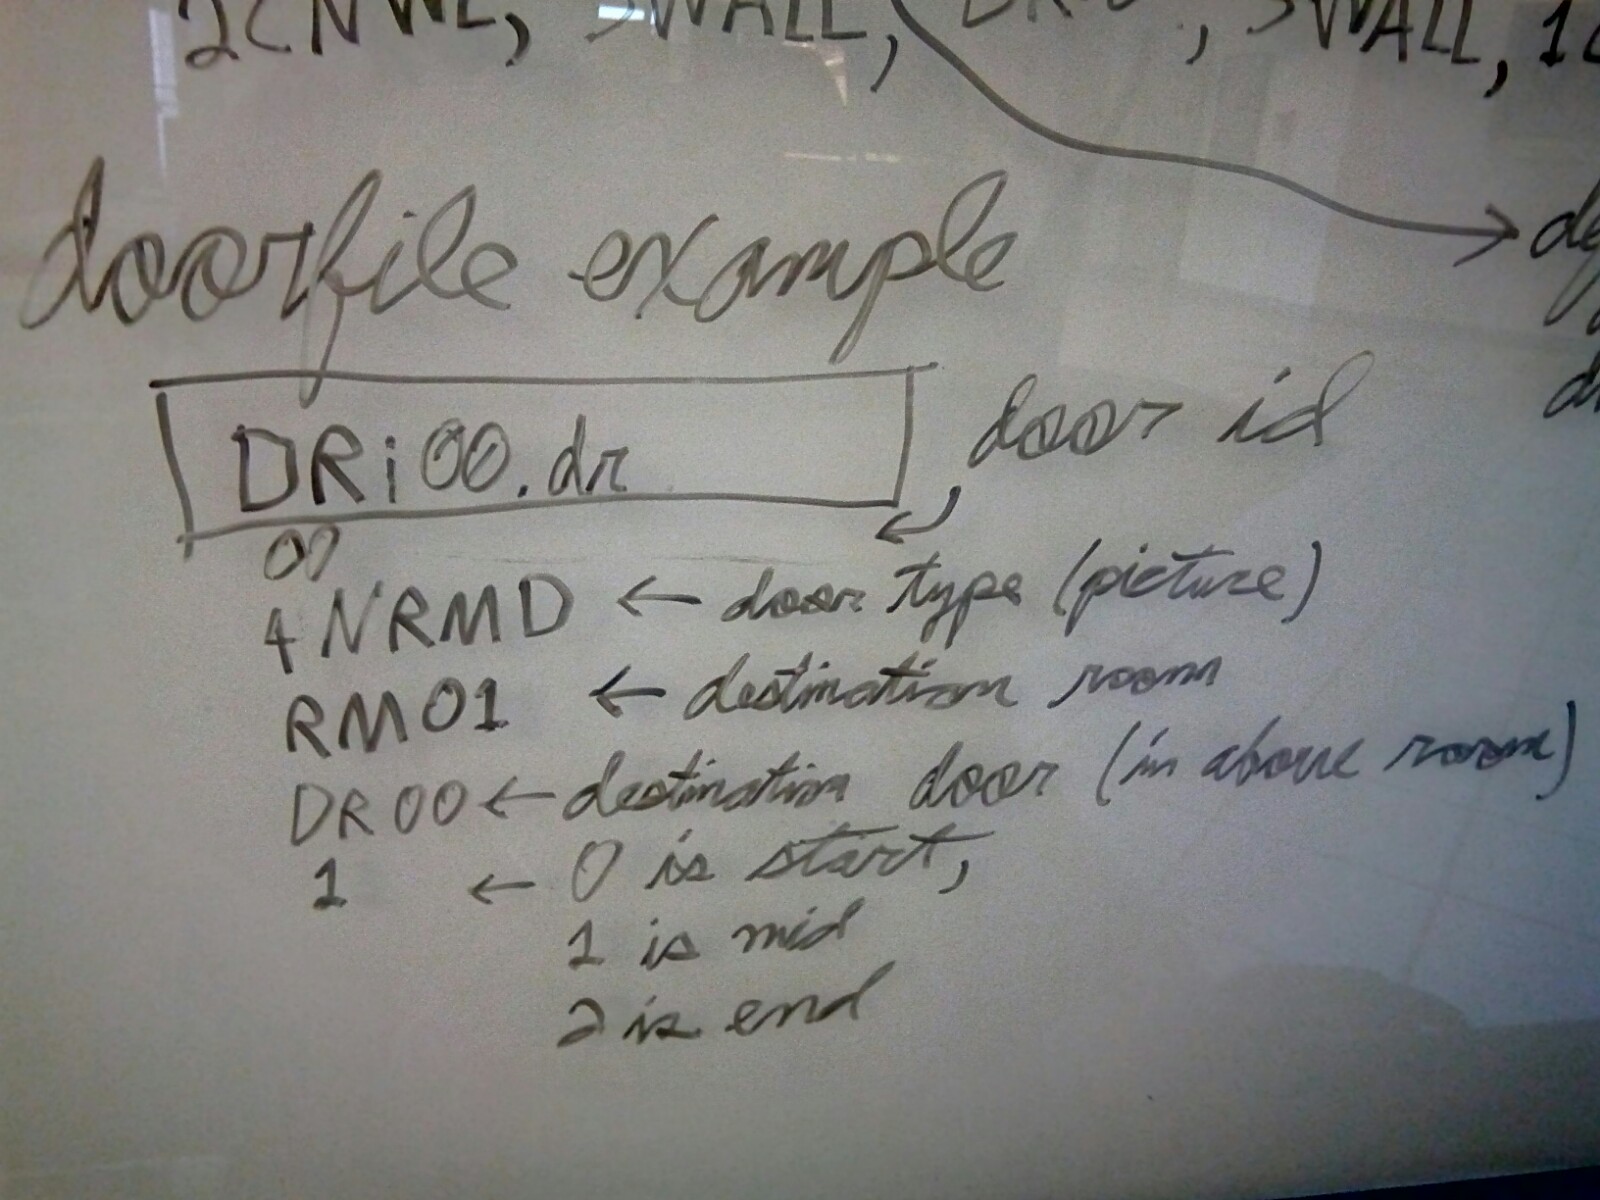 SWALL, SWALL,
doorfile example
DRi00.dr
door id
00
4NRMD ← door type (picture)
RM01 ← destination room
DR00 ← destination door (in above room)
1 ← 0 is start,
1 is mid
2 is end